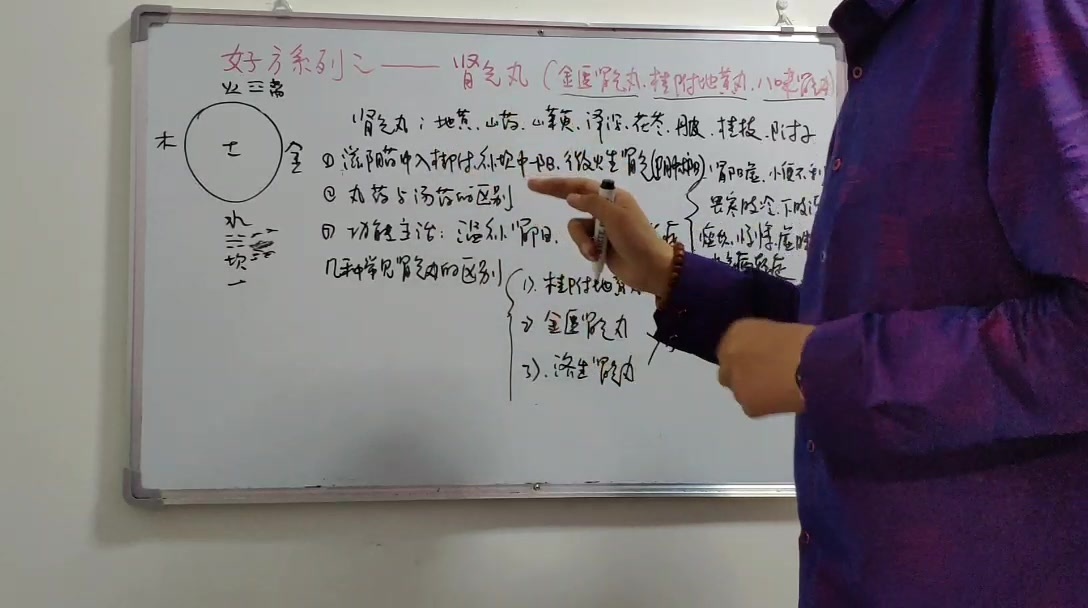 好方系列之——肾气丸（金匮肾气丸、桂附地黄丸、八味肾气丸）
火 ☲ 离
木 土 金
水
☵
坎
一
肾气丸：地黄、山药、山茱萸、泽泻、茯苓、丹皮、桂枝、附子
① 滋阴药中入桂附，补坎中一阳，微火生肾气
肾阳虚，小便不利
② 丸药与汤药的区别
畏寒肢冷、下肢
③ 功能主治：温补肾阳、
几种常见肾气丸的区别
1）、桂附地黄
2）金匮肾气丸
3）、济生肾气丸